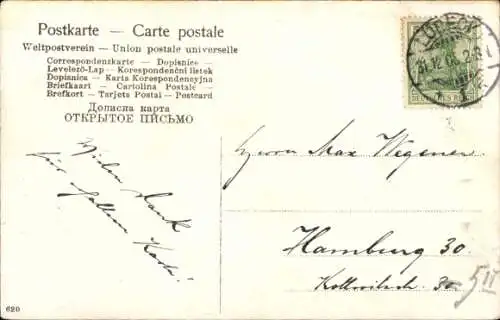 Postkarte — Carte postale
Weltpostverein — Union postale universelle
Correspondenzkarte — Dopisnice —
Levelező-Lap — Korespondenční listek
Dopisnica — Karta Korespondencyjna
Briefkaart — Cartolina Postale —
Brefkort — Tarjeta Postal — Postcard
Дописна карта
ОТКРЫТОЕ ПИСЬМО
31.12.06
DEUTSCHES REICH
Herrn Max Wegener
Hamburg 30.
30.
Vielen Dank
für
620